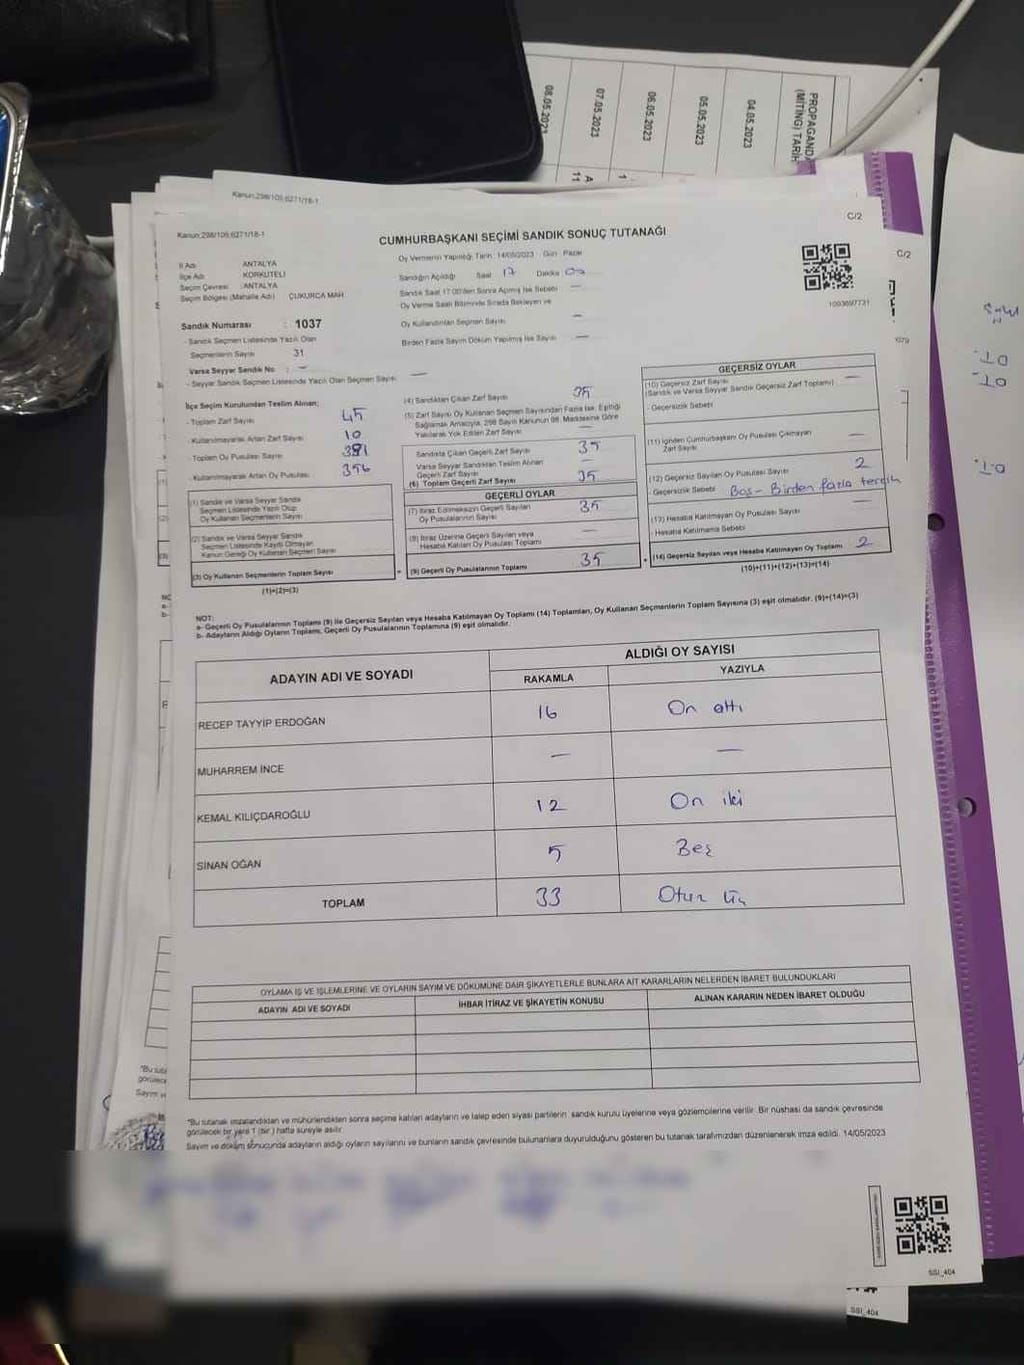 08.05.2023
07.05.2023
06.05.2023
05.05.2023
04.05.2023
PROPAGANDA
(MİTİNG) TARİH
Kanun:298/105;6271/18-1
Kanun:298/105;6271/18-1
C/2
C/2
CUMHURBAŞKANI SEÇİMİ SANDIK SONUÇ TUTANAĞI
İl Adı ANTALYA
İlçe Adı KORKUTELİ
Seçim Çevresi : ANTALYA
Seçim Bölgesi (Mahalle Adı) ÇUKURCA MAH.
Oy Vermenin Yapıldığı Tarih: 14/05/2023 Gün: Pazar
Sandığın Açıldığı Saat 17 Dakika 00
Sandık Saat 17:00'den Sonra Açılmış İse Sebebi —
Oy Verme Saati Bitiminde Sırada Bekleyen ve
Oy Kullandırılan Seçmen Sayısı —
Birden Fazla Sayım Döküm Yapılmış İse Sayısı —
Sandık Numarası : 1037
- Sandık Seçmen Listesinde Yazılı Olan
Seçmenlerin Sayısı 31
Varsa Seyyar Sandık No : —
- Seyyar Sandık Seçmen Listesinde Yazılı Olan Seçmen Sayısı —
İlçe Seçim Kurulundan Teslim Alınan;
- Toplam Zarf Sayısı 45
- Kullanılmayarak Artan Zarf Sayısı 10
- Toplam Oy Pusulası Sayısı 391
- Kullanılmayarak Artan Oy Pusulası 356
(1) Sandık ve Varsa Seyyar Sandık
Seçmen Listesinde Yazılı Olup
Oy Kullanan Seçmenlerin Sayısı
(2) Sandık ve Varsa Seyyar Sandık
Seçmen Listesinde Kaydı Olmayan
Kanun Gereği Oy Kullanan Seçmenlerin Sayısı
(3) Oy Kullanan Seçmenlerin Toplam Sayısı
(1)+(2)=(3)
(4) Sandıktan Çıkan Zarf Sayısı 35
(5) Zarf Sayısı Oy Kullanan Seçmen Sayısından Fazla İse, Eşitliği
Sağlamak Amacıyla, 298 Sayılı Kanunun 98. Maddesine Göre
Yakılarak Yok Edilen Zarf Sayısı —
Sandıkta Çıkan Geçerli Zarf Sayısı 35
Varsa Seyyar Sandıktan Teslim Alınan
Geçerli Zarf Sayısı —
(6) Toplam Geçerli Zarf Sayısı 35
GEÇERLİ OYLAR
(7) İtiraz Edilmeksizin Geçerli Sayılan
Oy Pusulalarının Sayısı 35
(8) İtiraz Üzerine Geçerli Sayılan veya
Hesaba Katılan Oy Pusulası Toplamı —
(9) Geçerli Oy Pusulalarının Toplamı 35
GEÇERSİZ OYLAR
(10) Geçersiz Zarf Sayısı —
(Sandık ve Varsa Seyyar Sandık Geçersiz Zarf Toplamı)
- Geçersizlik Sebebi
(11) İçinden Cumhurbaşkanı Oy Pusulası Çıkmayan
Zarf Sayısı —
(12) Geçersiz Sayılan Oy Pusulası Sayısı 2
- Geçersizlik Sebebi Boş - Birden fazla tercih
(13) Hesaba Katılmayan Oy Pusulası Sayısı —
- Hesaba Katılmama Sebebi
(14) Geçersiz Sayılan veya Hesaba Katılmayan Oy Toplamı 2
(10)+(11)+(12)+(13)=(14)
NOT:
a- Geçerli Oy Pusulalarının Toplamı (9) ile Geçersiz Sayılan veya Hesaba Katılmayan Oy Toplamı (14) Toplamları, Oy Kullanan Seçmenlerin Toplam Sayısına (3) eşit olmalıdır. (9)+(14)=(3)
b- Adayların Aldığı Oyların Toplamı, Geçerli Oy Pusulalarının Toplamına (9) eşit olmalıdır.
ADAYIN ADI VE SOYADI
ALDIĞI OY SAYISI
RAKAMLA YAZIYLA
RECEP TAYYİP ERDOĞAN 16 On altı
MUHARREM İNCE — —
KEMAL KILIÇDAROĞLU 12 On iki
SİNAN OĞAN 5 Beş
TOPLAM 33 Otuz üç
OYLAMA İŞ VE İŞLEMLERİNE VE OYLARIN SAYIM VE DÖKÜMÜNE DAİR ŞİKAYETLERLE BUNLARA AİT KARARLARIN NELERDEN İBARET BULUNDUKLARI
ADAYIN ADI VE SOYADI İHBAR İTİRAZ VE ŞİKAYETİN KONUSU ALINAN KARARIN NEDEN İBARET OLDUĞU
*Bu tutanak imzalandıktan ve mühürlendikten sonra seçime katılan adayların ve talep eden siyasi partilerin sandık kurulu üyelerine veya gözlemcilerine verilir. Bir nüshası da sandık çevresinde
görülecek bir yere 1 (bir) hafta süreyle asılır.
Sayım ve döküm sonucunda adayların aldığı oyların sayılarını ve bunların sandık çevresinde bulunanlara duyurulduğunu gösteren bu tutanak tarafımızdan düzenlenerek imza edildi. 14/05/2023
SSI_404
SSI_404